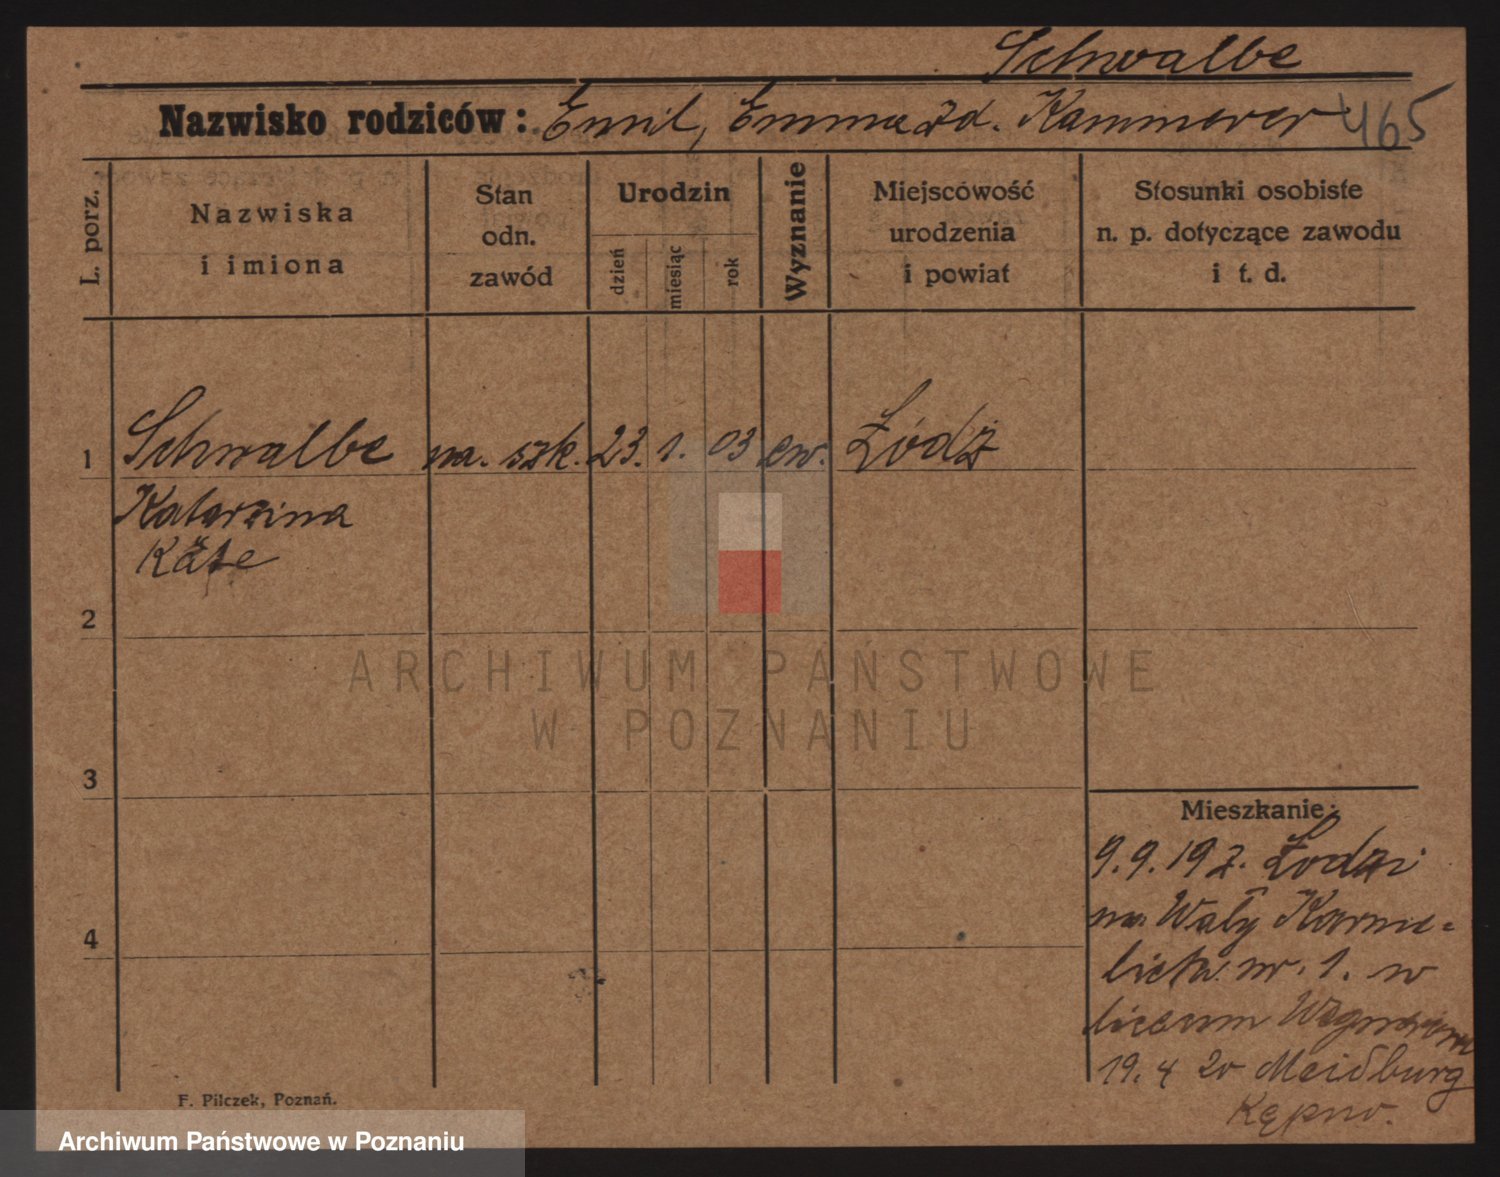 Schwalbe
Nazwisko rodziców: Emil, Emma zd. Kammerer 465
L. porz.
Nazwiska
i imiona
Stan
odn.
zawód
Urodzin
dzień
miesiąc
rok
Wyznanie
Miejscowość
urodzenia
i powiat
Stosunki osobiste
n. p. dotyczące zawodu
i t. d.
1 Schwalbe na. szk. 23. 1. 03 ew. Łódź
Katarzina
Käte
2
3
4
ARCHIWUM PAŃSTWOWE
W POZNANIU
Mieszkanie:
9.9.192. Łodzi
na Wały Karme=
lick. nr. 1. w
liceum
19. 4 Meidburg
Kępno.
F. Pilczek, Poznań.
Archiwum Państwowe w Poznaniu